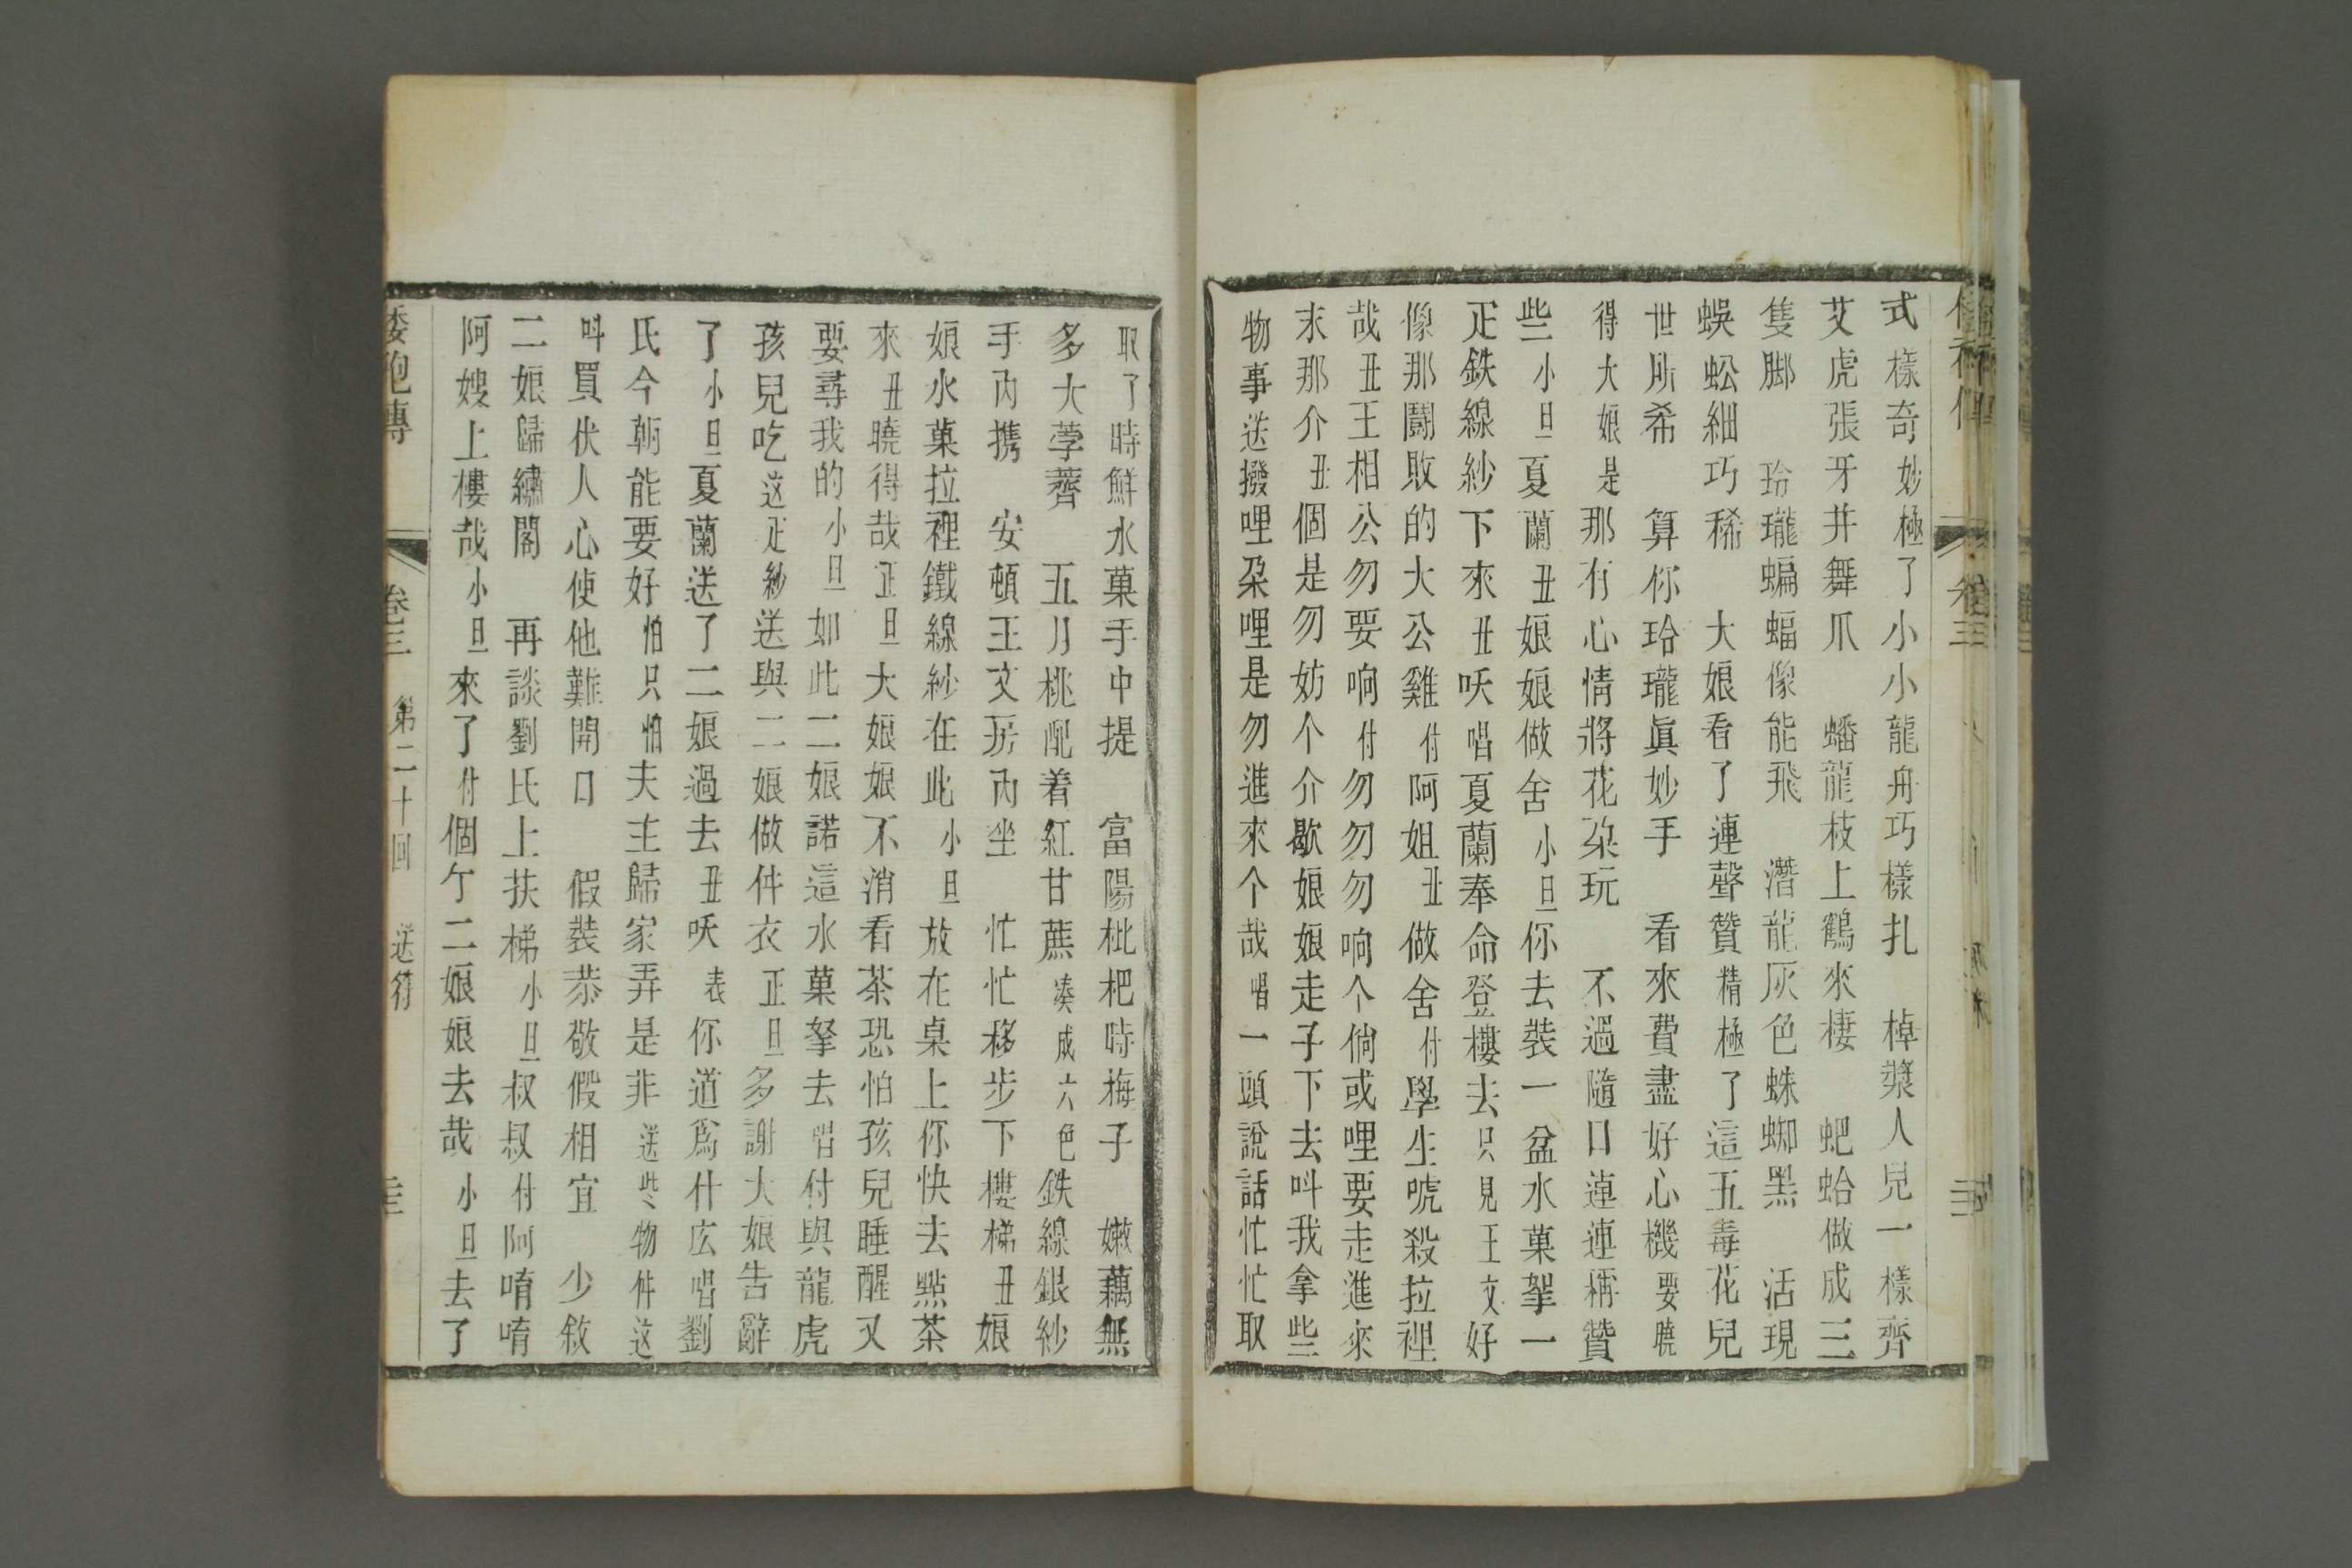 式樣奇妙極了小小龍舟巧樣扎 棹槳人兒一樣齊
艾虎張牙并舞爪 蟠龍枝上鶴來棲 蚆蛤做成三
隻脚 玲瓏蝙蝠像能飛 潛龍灰色蛛蜘黑 活現
蜈蚣細巧稀 大娘看了連聲贊精極了這五毒花兒
世所希 算你玲瓏眞妙手 看來費盡好心機要曉
得大娘是那有心情將花朶玩 不過隨口連連稱贊
些小旦夏蘭丑娘娘做舍小旦你去裝一盆水菓拏一
疋鉄線紗下來丑呅唱夏蘭奉命登樓去只見王文好
像那鬪敗的大公雞付阿姐丑做舍付學生唬殺拉裡
哉丑王相公勿要响付勿勿勿响个倘或哩要走進來
末那介丑個是勿妨个介歇娘娘走子下去呌我拿些
物事送撥哩朶哩是勿進來个哉唱一頭說話忙忙取
取了時鮮水菓手中提 富陽枇杷時梅子 嫩藕無
多大荸薺 五月桃配着紅甘蔗凑成六色鉄線銀紗
手內携 安頓王文房內坐 忙忙移步下樓梯丑娘
娘水菓拉裡鐵線紗在此小旦放在桌上你快去㸃茶
來丑曉得哉正旦大娘娘不消看茶恐怕孩兒睡醒又
要尋我的小旦如此二娘諾這水菓拏去唱付與龍虎
孩兒吃这疋紗送與二娘做件衣正旦多謝大娘告辭
了小旦夏蘭送了二娘過去丑呅表你道爲什広唱劉
氏今朝能要好怕只怕夫主歸家弄是非送此物件这
呌買伏人心使他難開口 假裝恭敬假相宜 少敘
二娘歸繡閣 再談劉氏上扶梯小旦叔叔付阿唷唷
阿嫂上樓哉小旦來了付個个二娘娘去哉小旦去了
倭袍傳 卷三 第二十回 送符